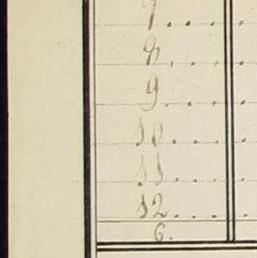 7....
8....
9....
10....
11....
12....
6.